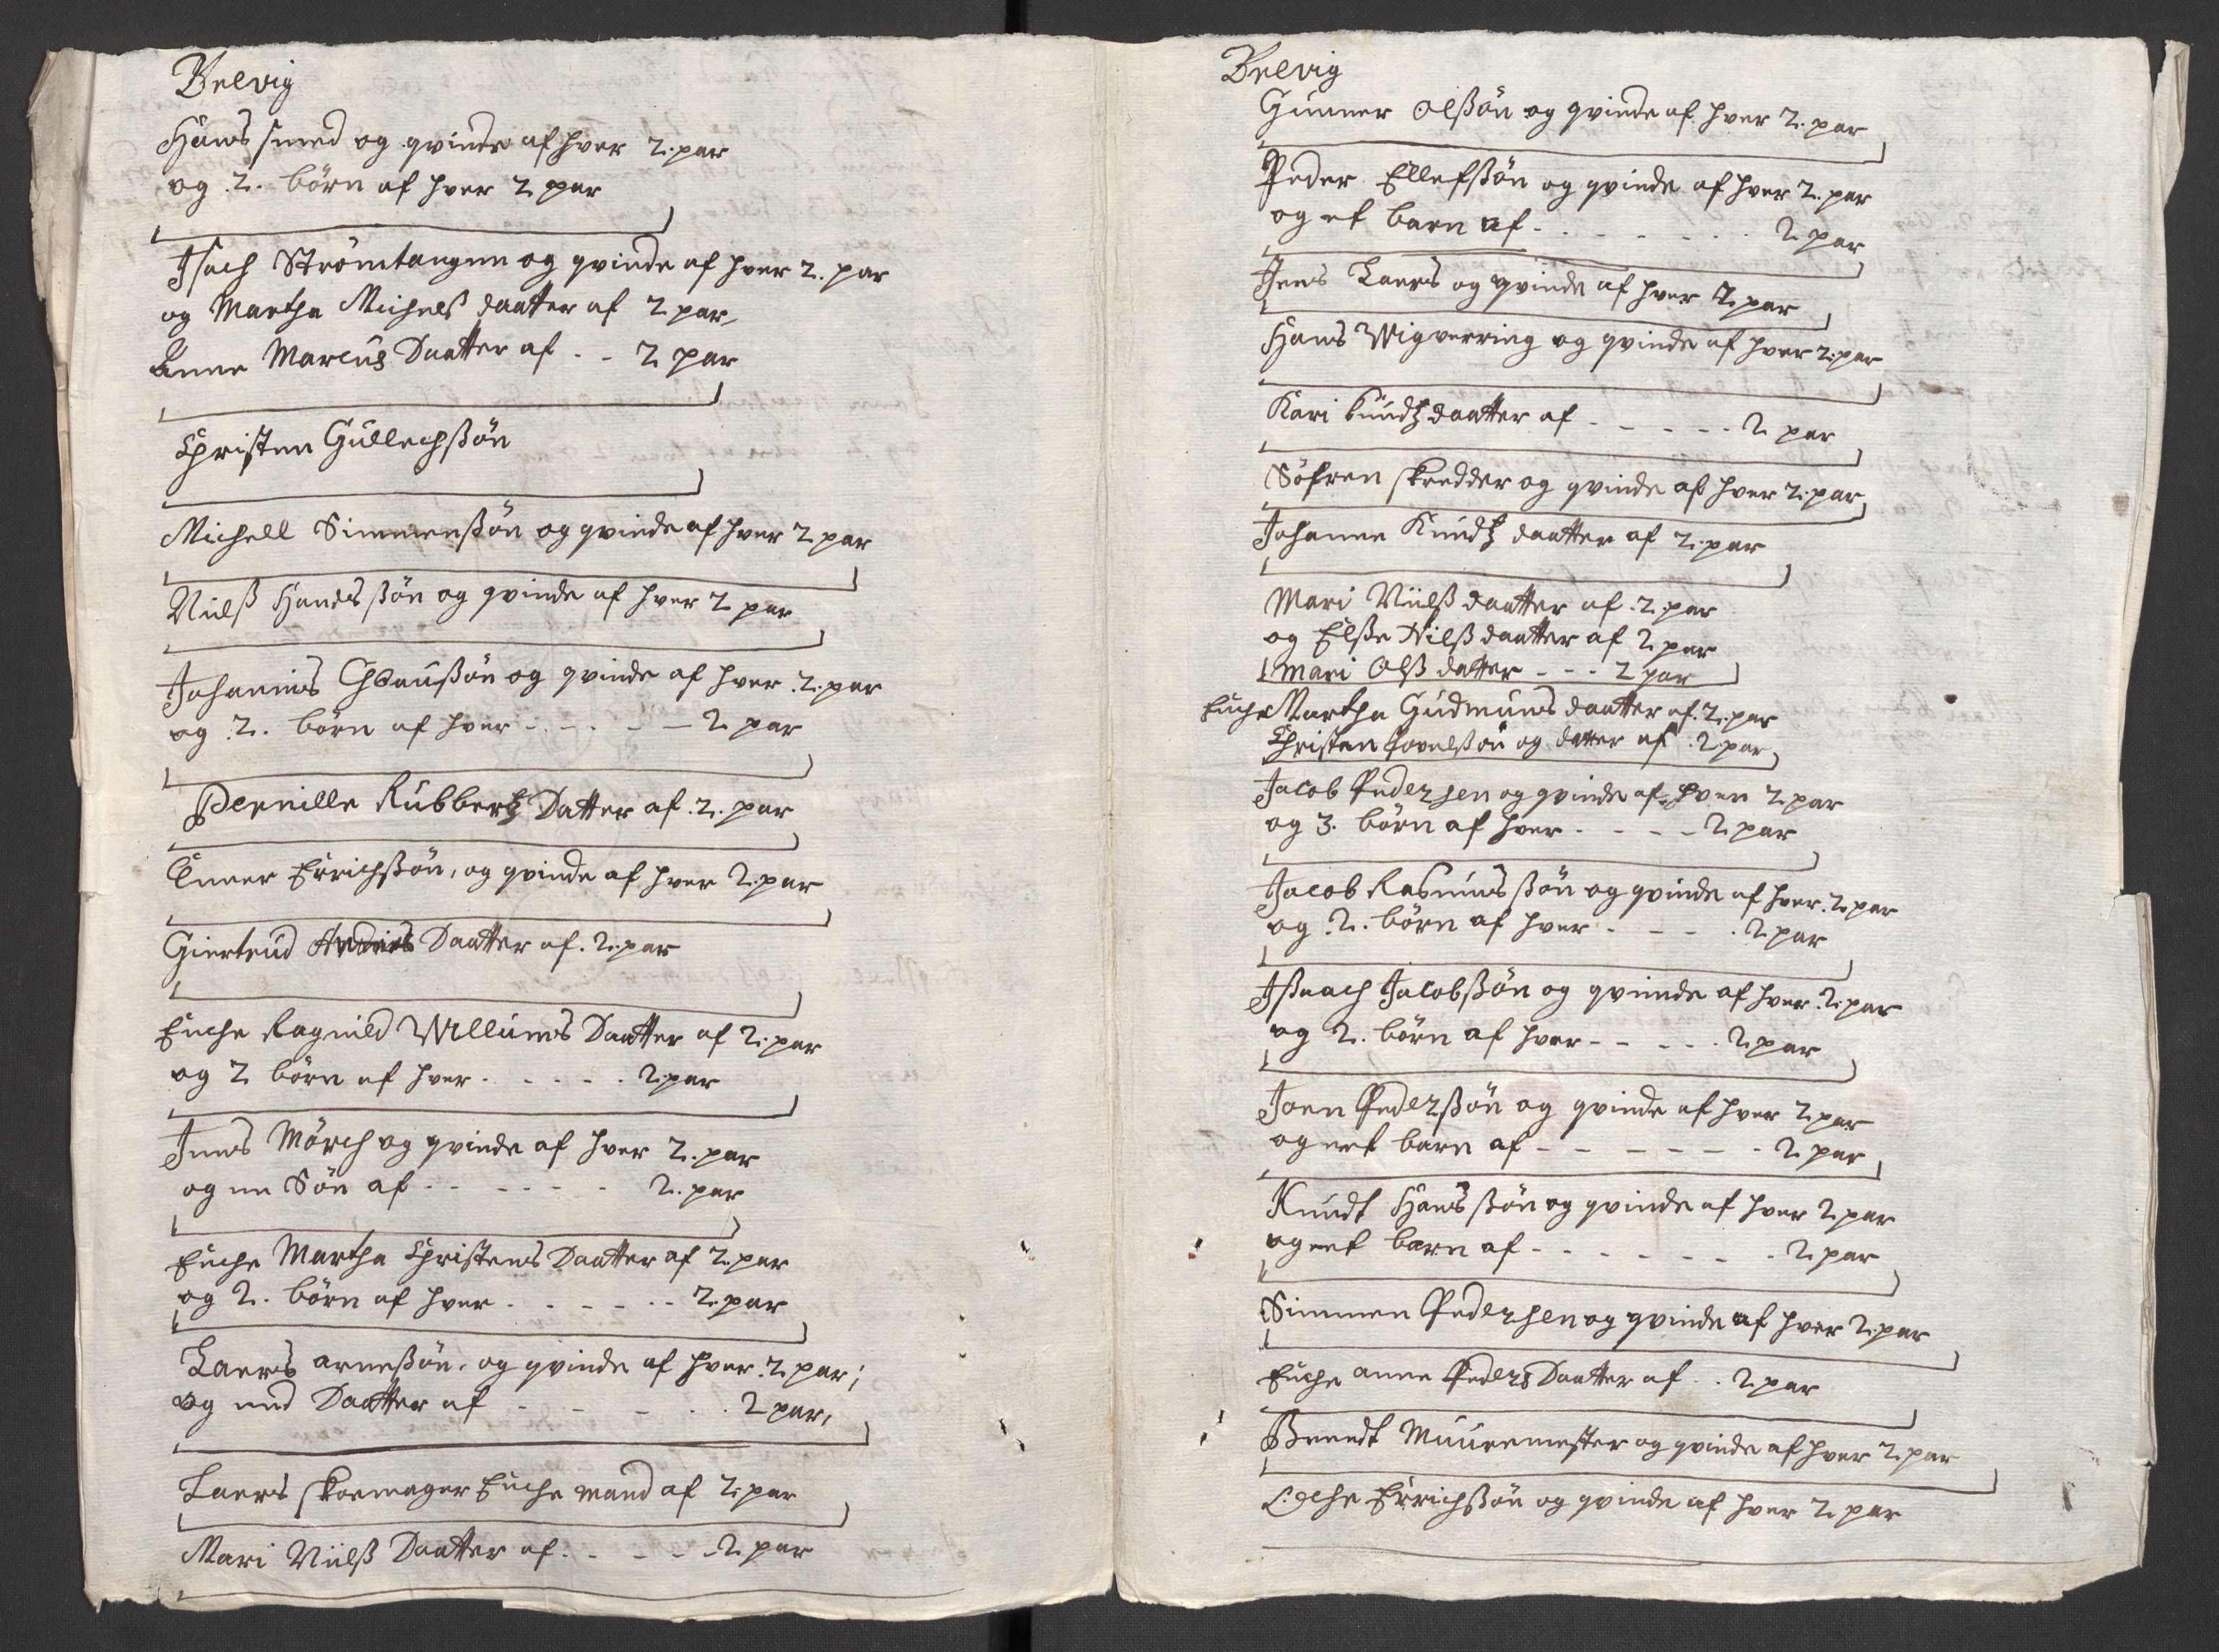 Belvig
Hans smed og qvinde af hver 2. par
og .2. börn af hver 2 par
Isach Strömtangen og qvinde af hver 2. par
og Martha Michelß daatter af 2 par,
Anne Marcus Daatter af . . 2 par
Christen Gullechßön
Michell Simmenßön og qvinde af hver 2 par
Nielß Handsßön og qvinde af hver 2 par
Johannis Claußön og qvinde af hver .2. par
og .2. börn af hver - . - . - - 2 par
Pernille Rubbertz Datter af .2. par
Anner Errichßön, og qvinde af hver 2. par
Giertrud Daatter af .2. par
Enche Ragnild Willums Daatter af 2. par
og 2 börn af hver . . . . . 2. par
Jens Mörch og qvinde af hver 2. par
og en Sön af - - - - - - 2. par
Enche Martha Christens Daatter af 2. par
og 2. börn af hver . . . - - - 2. par
Laers arneßön, og qvinde af hver .2. par;
og end Daatter af - - - . . 2 par,
Laers skoemager Enche mand af 2. par
Mari Niilß Daatter af . . - - 2. par
Belvig
Gunner Olßön og qvinde af hver 2. par
Peder Ellefßön og qvinde af hver 2. par
og et barn af - . . - - - . . 2 par
Jens Laers og qvinde af hver 2. par
Hans Wigverring og qvinde af hver 2. par
Kari kundtz daatter af - - - - - - 2 par
Söfren skredder og qvinde af hver 2. par
Johanne Knudtz daatter af 2. par
Mari Niilß daatter af .2. par
og Elße Nilß daatter af 2 par
Mari Olß datter - - - 2 par
Enche Martha Gudmunds daatter af .2. par
Christen Povelßön og datter af .2. par
Jacob Pedersen og qvinde af hver 2 par
og 3. börn af hver . - - - 2 par
Jacob Rasmusßön og qvinde af hver .2. par
og .2. börn af hver . - - . 2 par
Ißaach Jacobßön og qviinde af hver 2. par
og 2. börn af hver - - . . . 2. par
Joen Pederßön og qvinde af hver 2 par
og eet barn af - - - - - - 2. par
Knudt Hansßön og qvinde af hver 2 par
og eet barn af - - - - - - - . 2 par
Simmen Pedersen og qvinde af hver 2. par
Enche anne Peders Daatter af . . 2 par
Brendt Muuremester og qvinde af hver 2. par
Errichßön og qvinde af hver 2 par